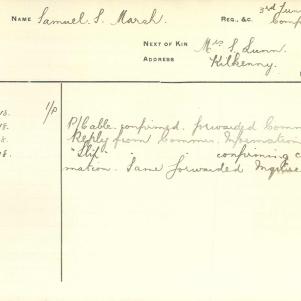 NAME Samuel S. Marsh. REG., &C. 3rd Tun
Com
NEXT OF KIN Mrs S. Lunn.
ADDRESS Kilkenny.
1/P P/Cable confirmed. forwarded Comm
18. Reply from Commn. Information
8. "Slip" " " confirming c
18. mation. Same forwarded Inquire